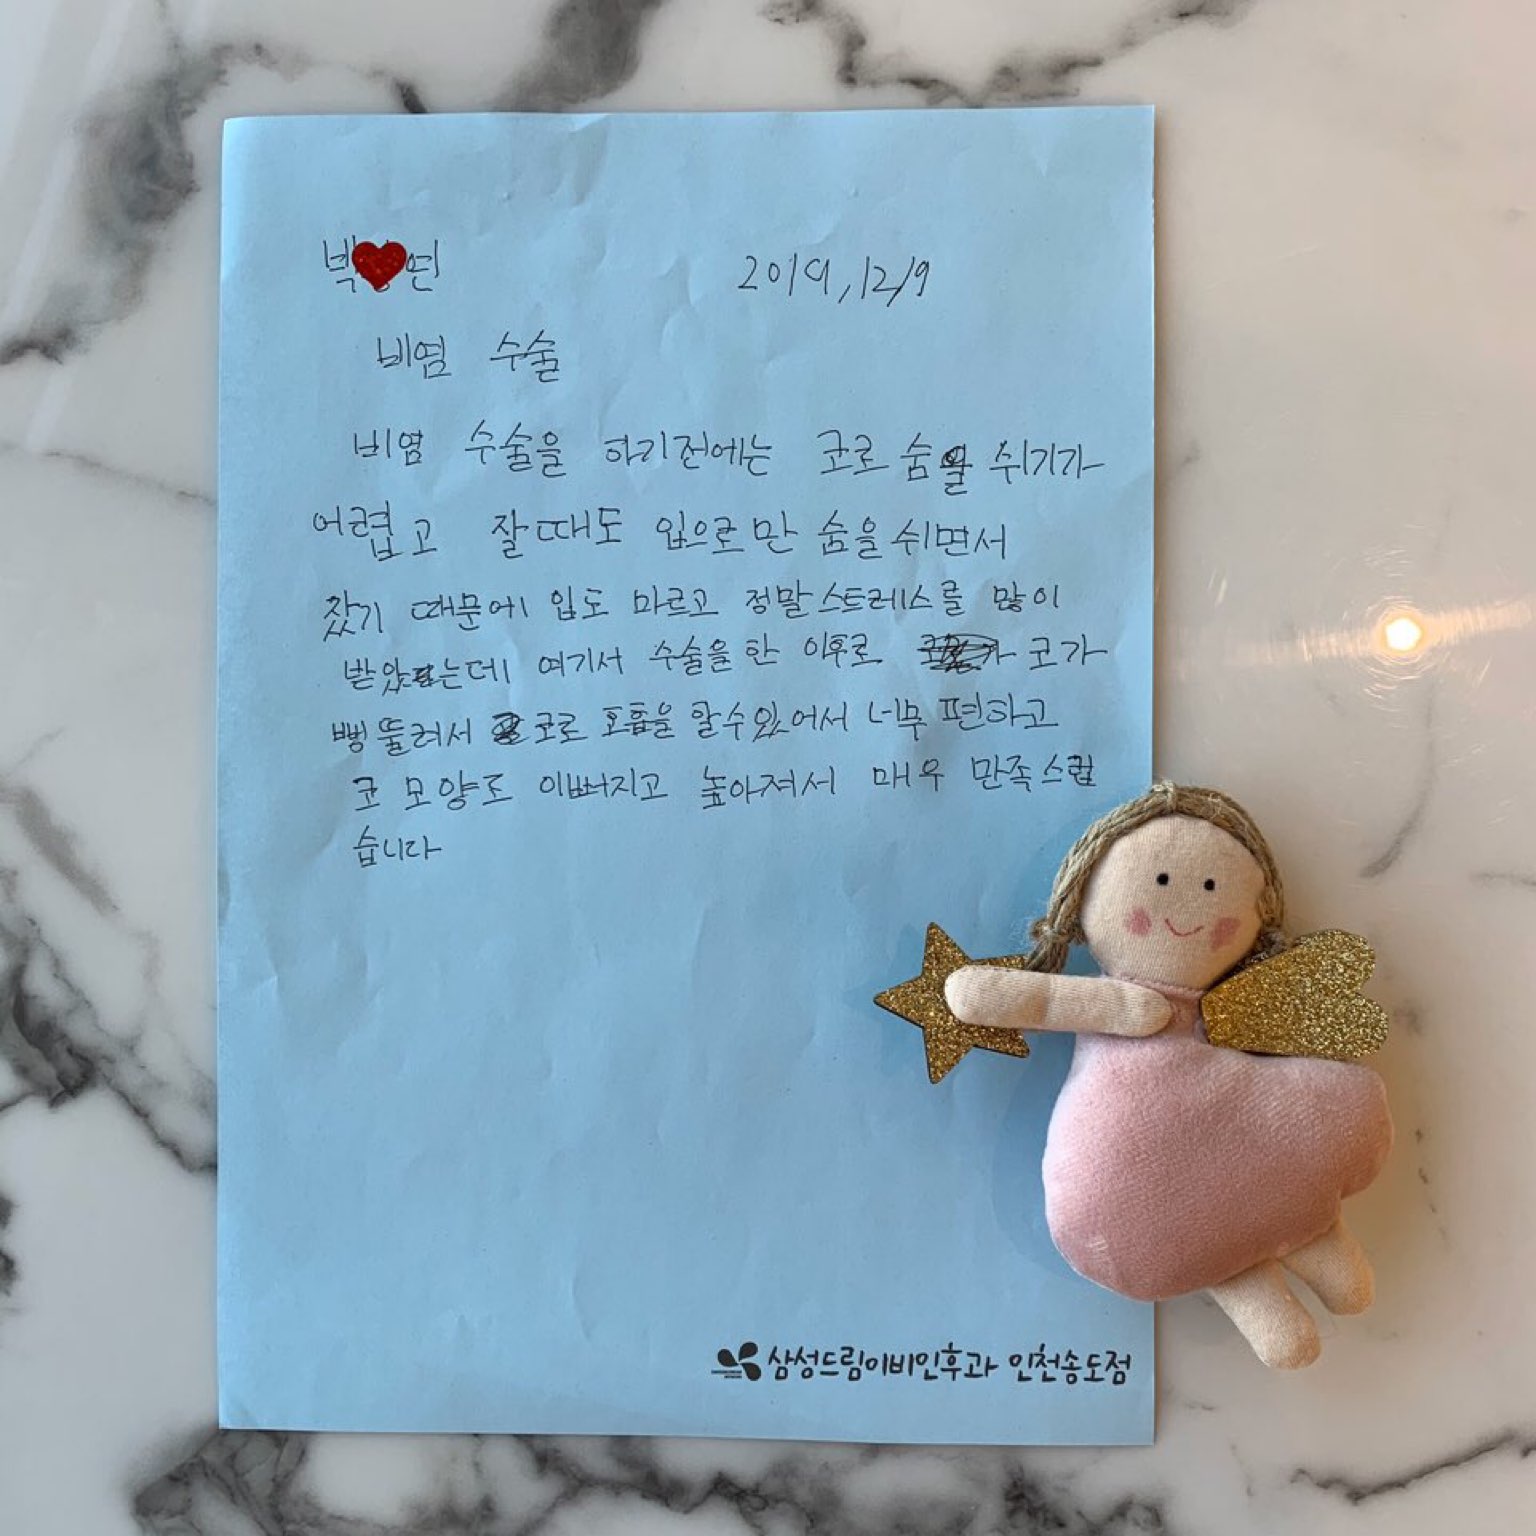 박 연 2019, 12/9
비염 수술
비염 수술을 하기전에는 코로 숨을 쉬기가
어렵고 잘때도 입으로만 숨을 쉬면서
잤기 때문에 입도 마르고 정말 스트레스를 많이
받았는데 여기서 수술을 한 이후로 코가
뻥 뚫려서 코로 호흡을 할수있어서 너무 편하고
코 모양도 이뻐지고 높아져서 매우 만족스럽
습니다
삼성드림이비인후과 인천송도점